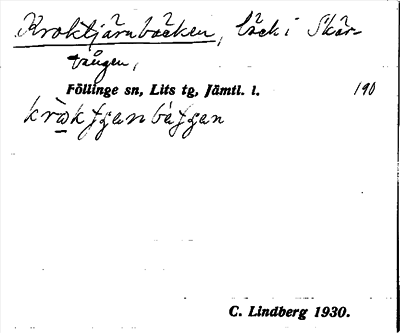 Kroktjärnbäcken, bäck i Skär-
vången,
Föllinge sn, Lits tg, Jämtl. l. 190
C. Lindberg 1930.